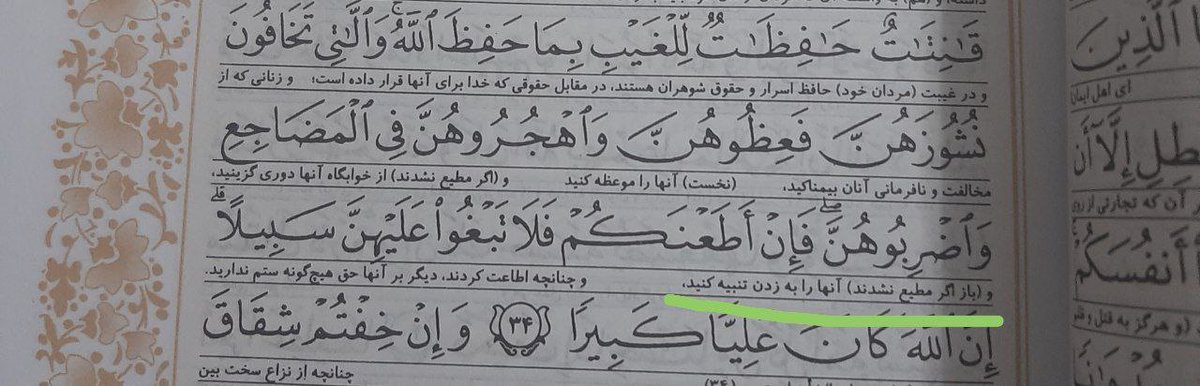 قَٰنِتَٰتٌ حَٰفِظَٰتٌ لِّلْغَيْبِ بِمَا حَفِظَ ٱللَّهُ ۚ وَٱلَّٰتِي تَخَافُونَ
و در غیبت (مردان خود) حافظ اسرار و حقوق شوهران هستند، در مقابل حقوقی که خدا برای آنها قرار داده است؛ و زنانی که از
نُشُوزَهُنَّ فَعِظُوهُنَّ وَٱهْجُرُوهُنَّ فِي ٱلْمَضَاجِعِ
مخالفت و نافرمانی آنان بیمناکید، (نخست) آنها را موعظه کنید و (اگر مطیع نشدند) از خوابگاه آنها دوری گزینید،
وَٱضْرِبُوهُنَّ ۖ فَإِنْ أَطَعْنَكُمْ فَلَا تَبْغُوا۟ عَلَيْهِنَّ سَبِيلًا ۗ
و (باز اگر مطیع نشدند) آنها را به زدن تنبیه کنید، و چنانچه اطاعت کردند، دیگر بر آنها حق هیچ‌گونه ستم ندارید.
إِنَّ ٱللَّهَ كَانَ عَلِيًّا كَبِيرًا ﴿۳۴﴾ وَإِنْ خِفْتُمْ شِقَاقَ
چنانچه از نزاع سخت بین
ٱلَّذِينَ
ای اهل ایمان
إِلَّآ أَن
آن که تجارتی از روی
أَنفُسَكُمْ
(و هرگز به قتل و